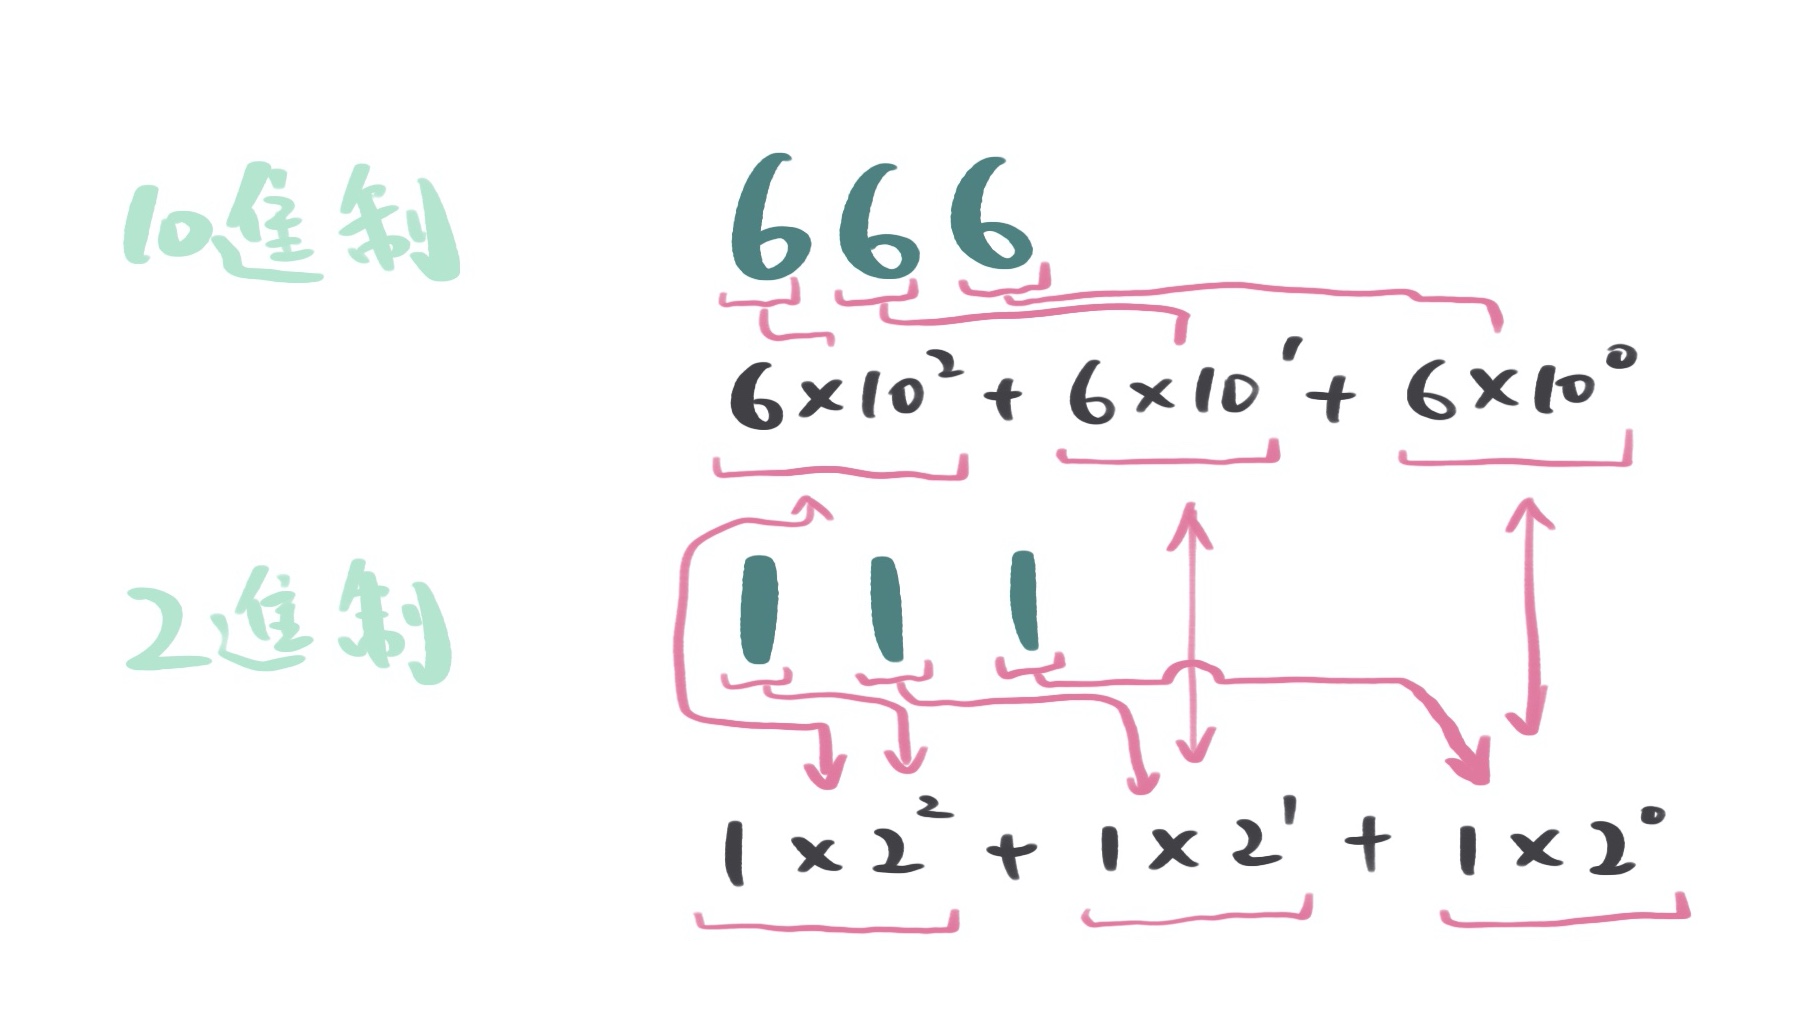 10進制 666
6×10² + 6×10¹ + 6×10⁰
2進制 111
1×2² + 1×2¹ + 1×2⁰